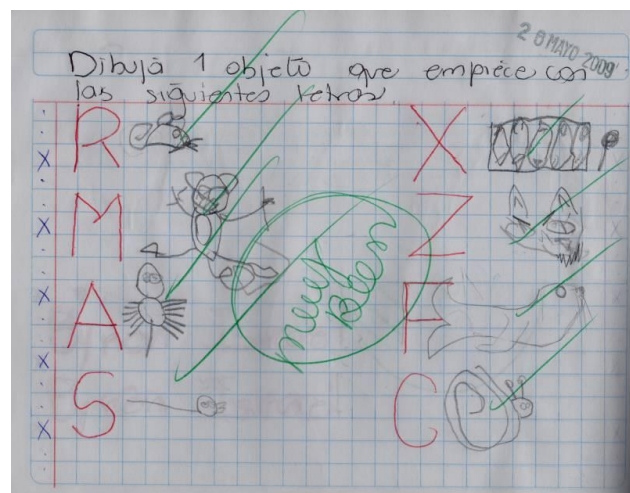 28 MAYO 2009
Dibuja 1 objeto que empiece con
las siguientes letras
R X
M Z
muy
bien
A F
S C